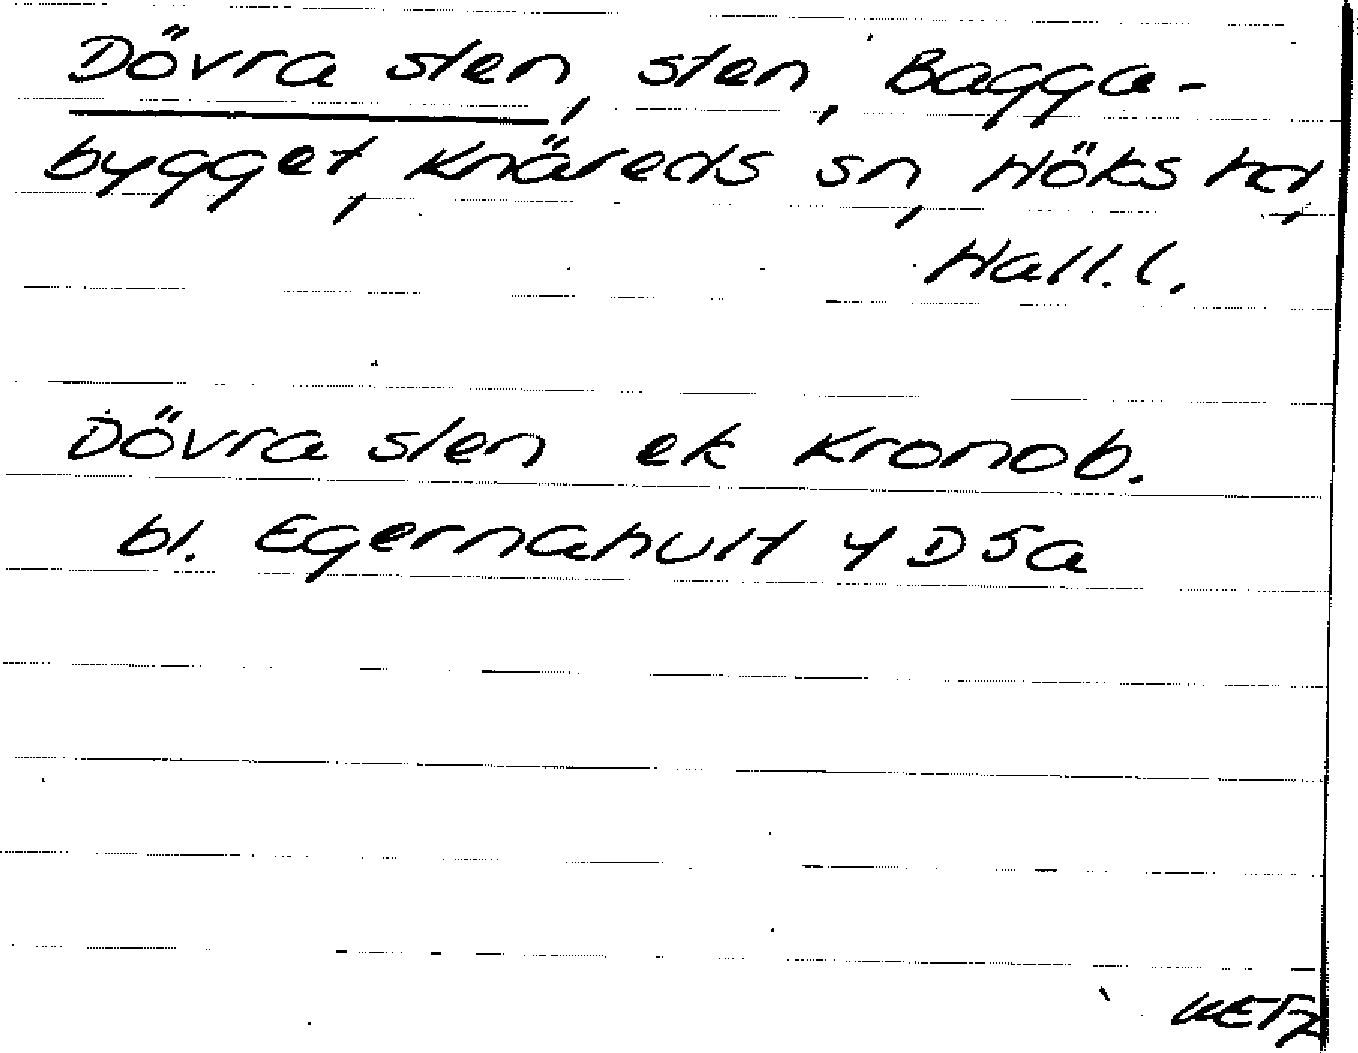 Dövra sten, sten, Bagga-
bygget, Knäreds sn, Höks hd,
Hall. l.
Dövra sten ek Kronob.
bl. Egernahult 4D5a